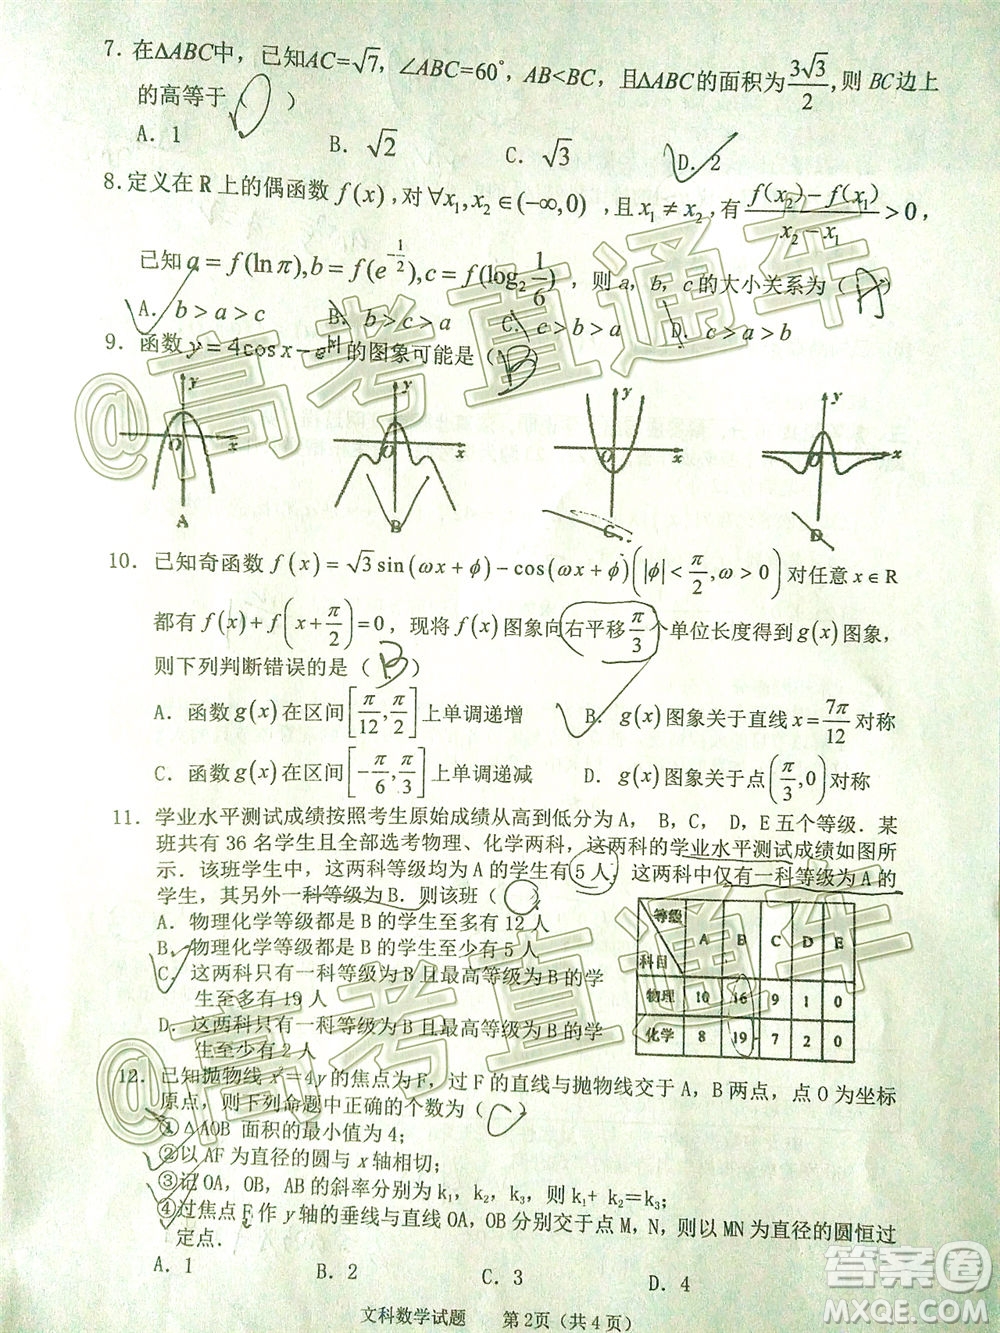 7. 在△ABC中，已知AC=√7, ∠ABC=60°, AB<BC, 且△ABC的面积为3√3/2, 则 BC边上
的高等于（ ）
A. 1 B. √2 C. √3 D. 2
8. 定义在 R 上的偶函数 f(x), 对 ∀x₁,x₂∈(-∞,0) , 且 x₁≠x₂, 有 (f(x₂)-f(x₁))/(x₂-x₁)>0,
已知 a=f(lnπ), b=f(e^(-1/2)), c=f(log₂ 1/6), 则 a, b, c的大小关系为（A）
A. b>a>c B. b>c>a C. c>b>a D. c>a>b
9. 函数 y=4cosx-e^|x| 的图象可能是（B）
y y y y
O x O x O x O x
A B C D
10. 已知奇函数 f(x)=√3sin(ωx+ϕ)-cos(ωx+ϕ)(|ϕ|<π/2,ω>0) 对任意 x∈R
都有 f(x)+f(x+π/2)=0, 现将 f(x) 图象向右平移 π/3 个单位长度得到 g(x) 图象,
则下列判断错误的是（B）
A. 函数 g(x) 在区间 [π/12,π/2] 上单调递增 B. g(x) 图象关于直线 x=7π/12 对称
C. 函数 g(x) 在区间 [-π/6,π/3] 上单调递减 D. g(x) 图象关于点 (π/3,0) 对称
11. 学业水平测试成绩按照考生原始成绩从高到低分为 A, B, C, D, E 五个等级. 某
班共有 36 名学生且全部选考物理、化学两科, 这两科的学业水平测试成绩如图所
示. 该班学生中, 这两科等级均为 A 的学生有 5 人, 这两科中仅有一科等级为 A 的
学生, 其另外一科等级为 B. 则该班（ ）
A. 物理化学等级都是 B 的学生至多有 12 人
B. 物理化学等级都是 B 的学生至少有 5 人
C. 这两科只有一科等级为 B 且最高等级为 B 的学
生至多有 19 人
D. 这两科只有一科等级为 B 且最高等级为 B 的学
生至少有 2 人
等级 科目 A B C D E
物理 10 16 9 1 0
化学 8 19 7 2 0
12. 已知抛物线 x²=4y 的焦点为 F, 过 F 的直线与抛物线交于 A, B 两点, 点 O 为坐标
原点, 则下列命题中正确的个数为（C）
①△AOB 面积的最小值为 4;
②以 AF 为直径的圆与 x 轴相切;
③记 OA, OB, AB 的斜率分别为 k₁, k₂, k₃, 则 k₁+ k₂=k₃;
④过焦点 F 作 y 轴的垂线与直线 OA, OB 分别交于点 M, N, 则以 MN 为直径的圆恒过
定点.
A. 1 B. 2 C. 3 D. 4
文科数学试题 第 2页（共 4 页）
@高考直通车
@高考直通车
答案圈
MXQE.COM